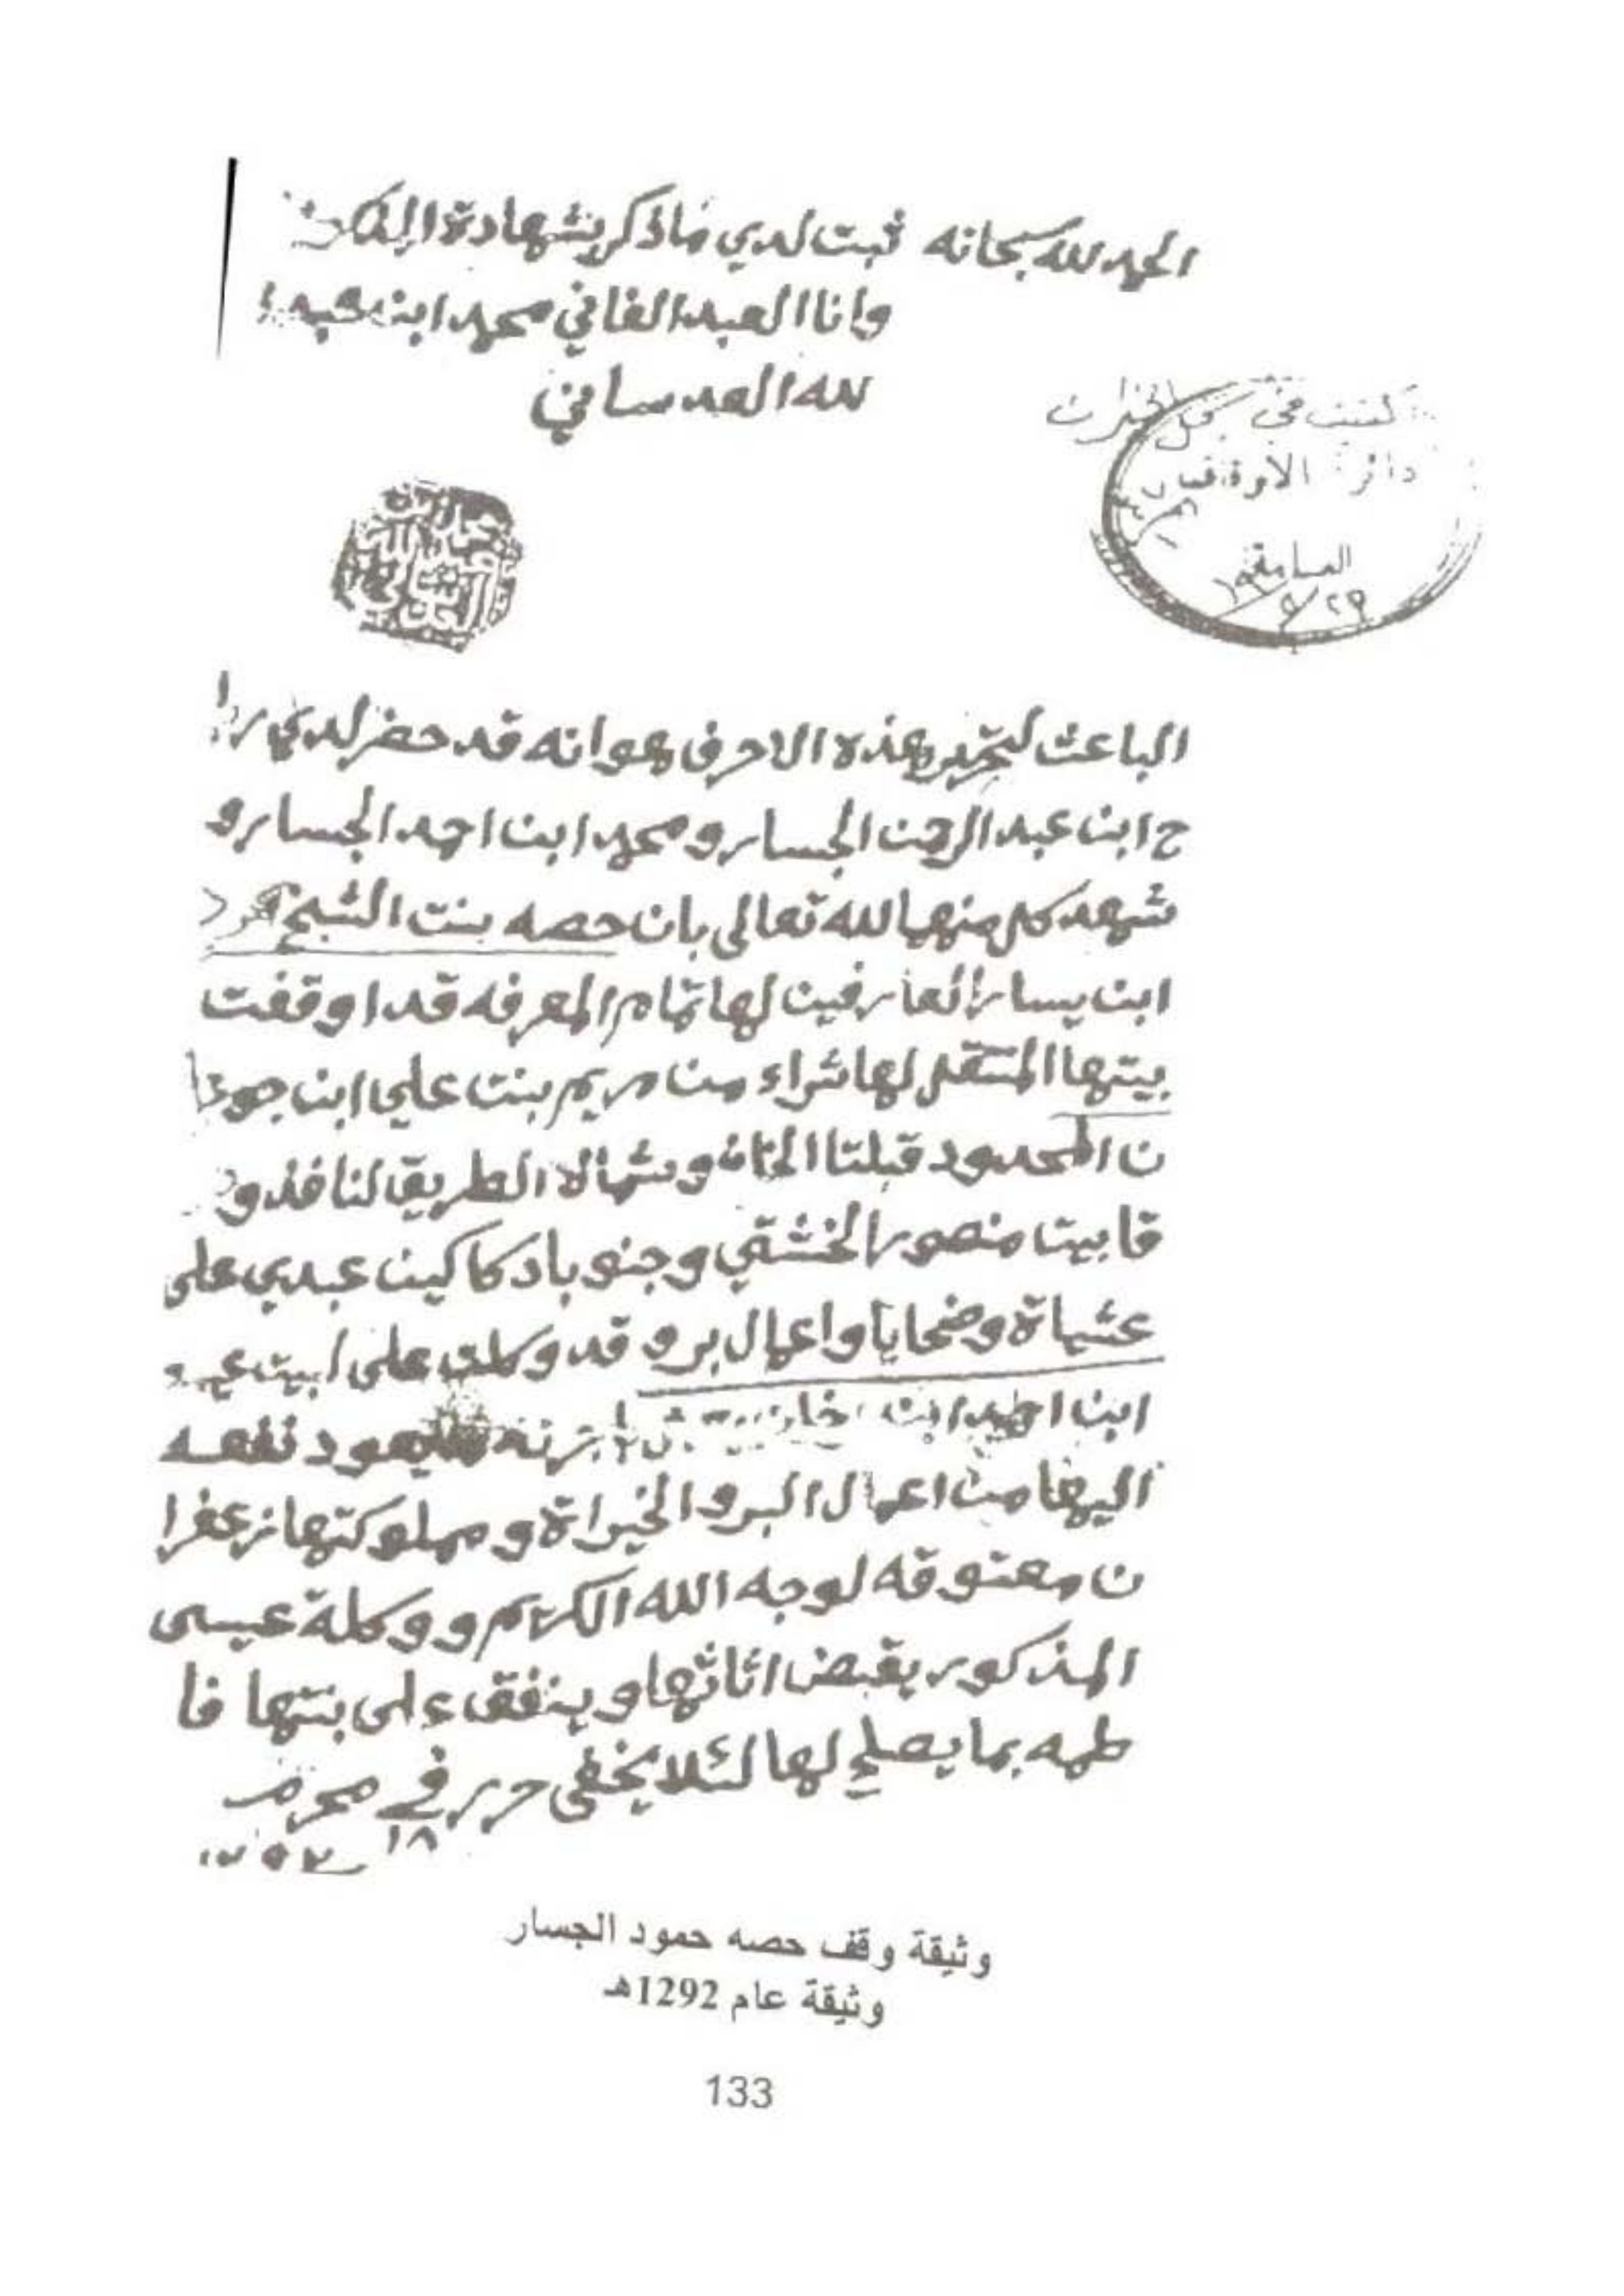 الحمد لله سبحانه ثبت لدي ما ذكر بشهادة
وانا العبد الفاني محمد ابن عبد ا
لله العدساني
كتبت في سجل الخيرات
دائرة الاوقاف
السابقة
الباعث لتحرير هذه الاحرف هو انه قد حضر لدي را
ح ابن عبد الرحمن الجسار و محمد ابن احمد الجسار و
شهد كل منهما لله تعالى بان حصه بنت الشيخ حمود
ابن يسار العارفين لها تمام المعرفه قد اوقفت
بيتها المنتقل لها شراء من مريم بنت علي ابن جوعا
ن المحدود قبلتا الخان و شمالا الطريق النافذ و
قا بيت منصور الخشتي و جنوبا دكاكين عبدي على
عشياة وضحايا واعمال بر و قد وكلت على
ابن احمد ابن يعود نفعه
اليها من اعمال البر و الخيراة و مملوكتها زعفرا
ن معتوقه لوجه الله الكريم و وكلة عيسى
المذكور يقبض اثاثها و ينفق على بنتها فا
طمه بما يصلح لها لئلا يخفى حرر في محرم
١٨ ١٢٩٢
وثيقة وقف حصه حمود الجسار
وثيقة عام 1292هـ
133